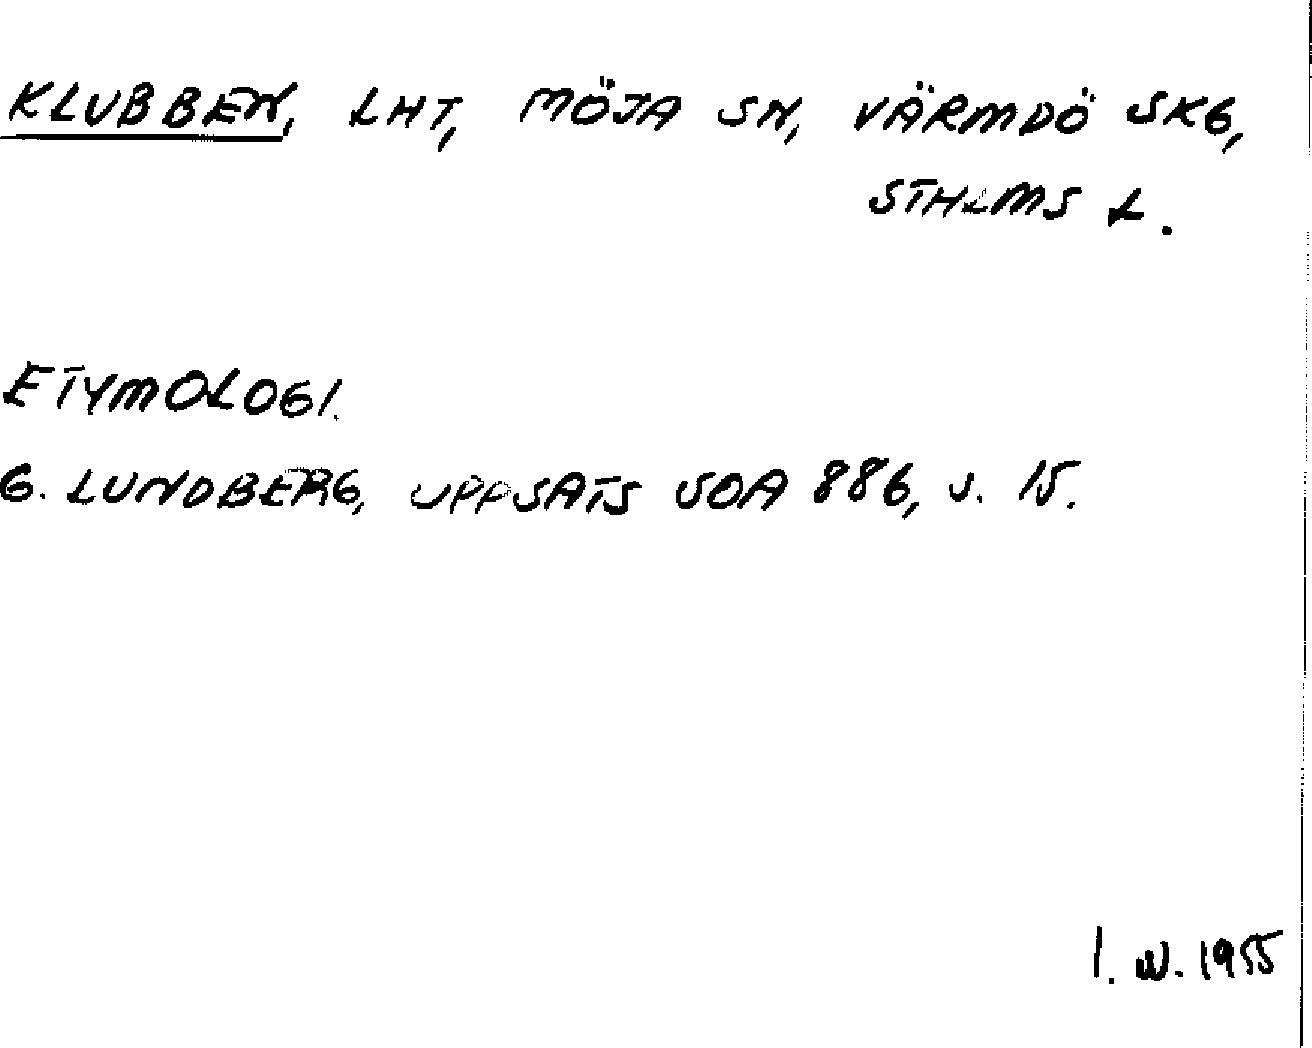 KLUBBEN, LHT, MÖJA SN, VÄRMDÖ SKG,
STHLMS L.
ETYMOLOGI.
G. LUNDBERG, UPPSATS SOA 886, S. 15.
I. W. 1955